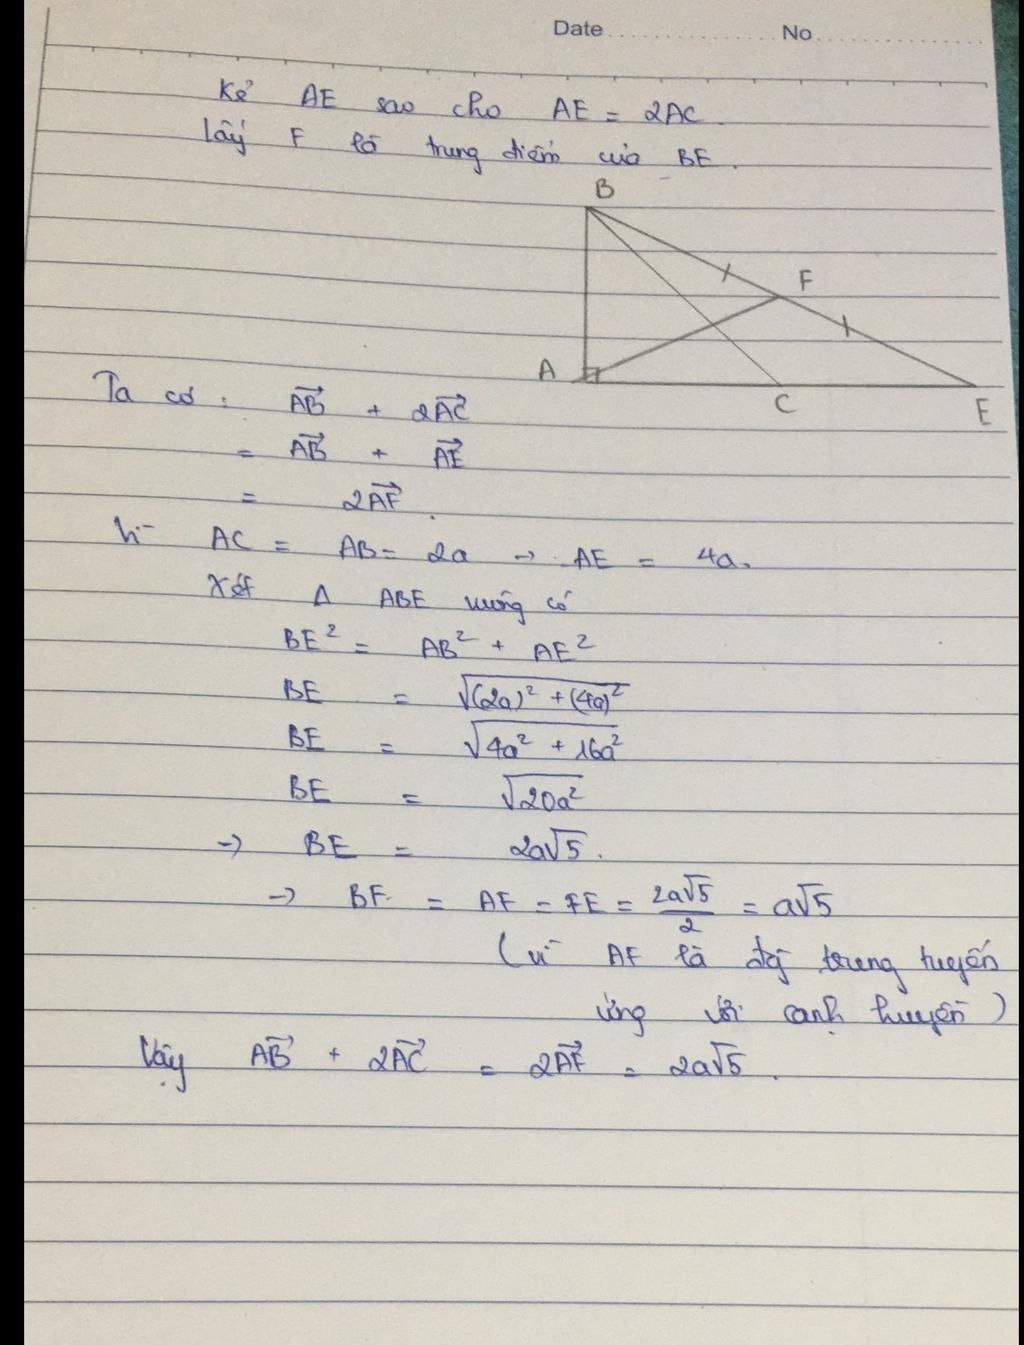 Date No
Kẻ AE sao cho AE = 2AC.
lấy F là trung điểm của BE.
B
F
A
C
E
Ta có: \overrightarrow{AB} + 2\overrightarrow{AC}
= \overrightarrow{AB} + \overrightarrow{AE}
= 2\overrightarrow{AF}.
Vì AC = AB = 2a → AE = 4a.
Xét Δ ABE vuông có
BE² = AB² + AE²
BE = √((2a)² + (4a)²)
BE = √(4a² + 16a²)
BE = √(20a²)
→ BE = 2a√5.
→ BF = AF = FE = 2a√5/2 = a√5
(vì AF là đg trung tuyến
ứng với cạnh huyền)
Vậy \overrightarrow{AB} + 2\overrightarrow{AC} = 2\overrightarrow{AF} = 2a√5.